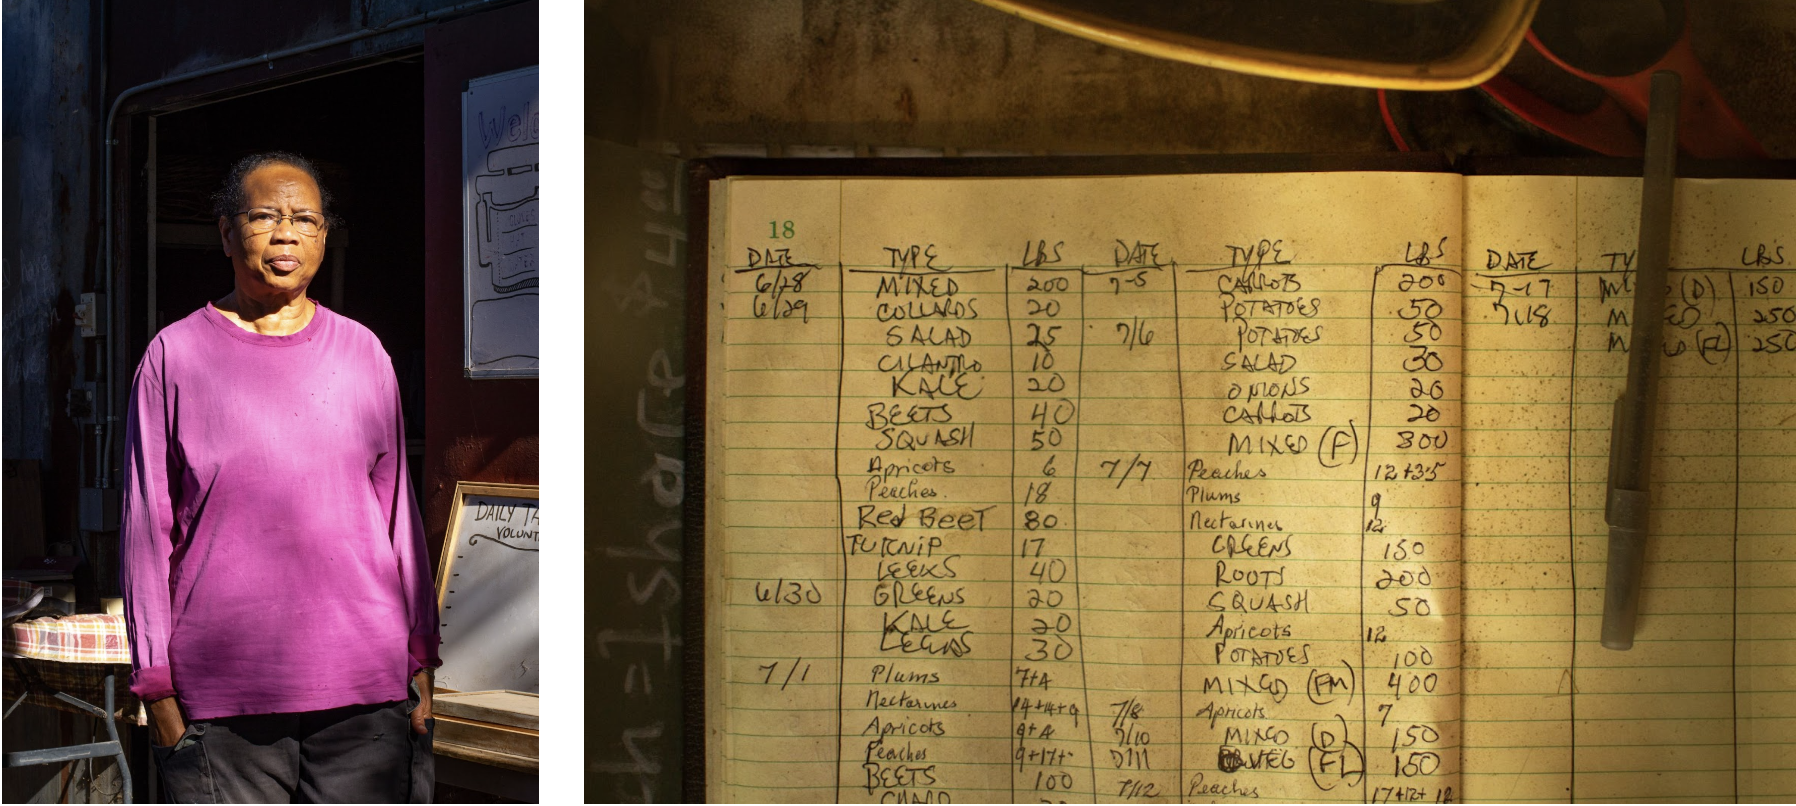 Wel
DAILY TA
VOLUNT
18
DATE TYPE LBS DATE TYPE LBS DATE TY LBS
6/28 MIXED 200 7-5 CARROTS 200 7-17 (D) 150
6/29 COLLARDS 20 POTATOES 50 7/18 M 250
SALAD 25 7/6 POTATOES 50 M (FL) 250
CILANTRO 10 SALAD 30
KALE 20 ONIONS 20
BEETS 40 CARROTS 20
SQUASH 50 MIXED (F) 300
Apricots 6 7/7 Peaches 12+3.5
Peaches 18 Plums 9
Red BEET 80 Nectarines 12
TURNIP 17 GREENS 150
LEEKS 40 ROOTS 200
6/30 GREENS 20 SQUASH 50
KALE 20 Apricots 12
30 POTATOES 100
7/1 Plums 7+A MIXED (FM) 400
Nectarines 14+14+9 7/8 Apricots 7
Apricots 9+A 7/10 MIXED (D) 150
Peaches 9+17+ (FL) 150
BEETS 100 7/12 Peaches 17+12+
CHARD
= 1 share